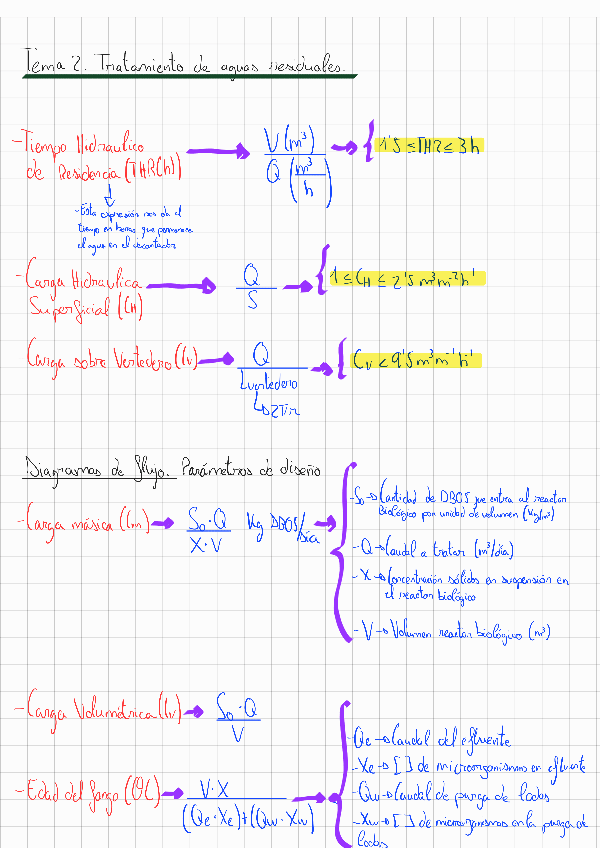 Tema 2. Tratamiento de aguas residuales.
-Tiempo Hidraulico
de Residencia (THR(h))
V(m³)
Q (m³/h)
1'5 ≤ THR ≤ 3 h
-Esta expresión nos da el
tiempo en horas que permanece
el agua en el decantador
-Carga Hidraulica
Superficial (CH)
Q
S
1 ≤ CH ≤ 2'5 m³m⁻²h⁻¹
Carga sobre Vertedero (Cv)
Q
Lvertedero
↳2πr
Cv < 9'5 m³m⁻¹h⁻¹
Diagramas de flujo. Parámetros de diseño
-Carga másica (Cm)
So·Q
X·V
Kg DBO5/día
-So→Cantidad de DBO5 que entra al reactor
Biológico por unidad de volumen (Kg/m³)
-Q→Caudal a tratar (m³/día)
-X→Concentración sólidos en suspensión en
el reactor biológico
-V→Volumen reactor biológico (m³)
-Carga Volumétrica (Cv)
So·Q
V
-Edad del fango (θc)
V·X
(Qe·Xe)+(Qw·Xw)
-Qe→Caudal del efluente
-Xe→[ ] de microorganismos en efluente
-Qw→Caudal de purga de lodos
-Xw→[ ] de microorganismos en la purga de
lodos